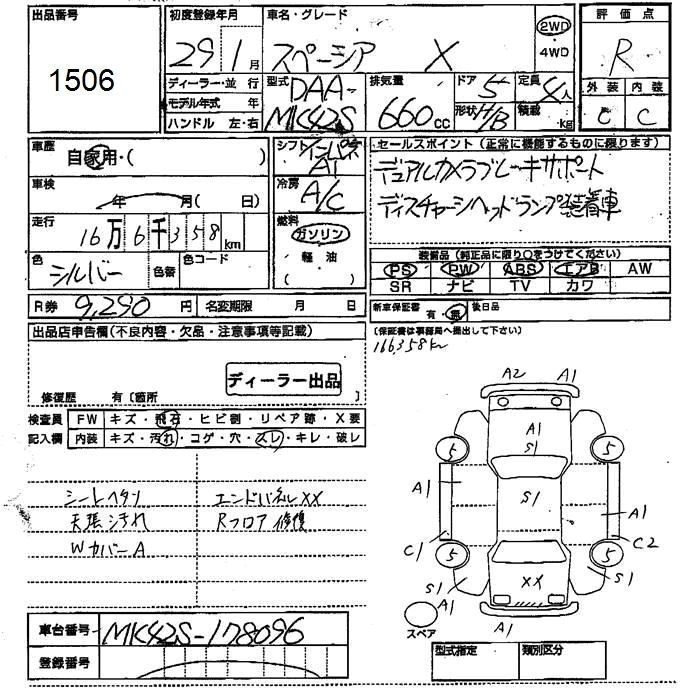 出品番号
1506
初度登録年月
29 1月
車名・グレード
スペーシア X
2WD
・4WD
評価点
R
外装 内装
C C
ディーラー・並行
モデル年式 年
ハンドル 左・右
型式
DAA-
MK42S
排気量
660cc
ドア 5
形状 H/B
定員 4人
積載 kg
車歴
自家用・( )
シフト
インパネ
AT
セールスポイント(正常に機能するものに限ります)
デュアルカメラブレーキサポート
ディスチャージヘッドランプ装着車
車検
年 月( 日)
冷房
A/C
走行
16万6千358km
燃料
ガソリン
軽油
( )
色
シルバー
色替
色コード
装備品(純正品に限り○をつけてください)
PS PW ABS エアB AW
SR ナビ TV カワ
R券 9,290円 名変期限 月 日
新車保証書 有・無 後日品
(保証書は事務局へ提出して下さい)
166358km
出品店申告欄(不良内容・欠品・注意事項等記載)
ディーラー出品
修復歴 有〔箇所
検査員
記入欄
FW キズ・飛石・ヒビ割・リペア跡・X要
内装 キズ・汚れ・コゲ・穴・スレ・キレ・破レ
シートヘタリ エンドパネルXX
天張汚れ Rフロア修復
WカバーA
A2 A1
A1
S1
5 5
A1 S1 A1
C1 C2
5 5
S1 XX S1
A1
A1
スペア
車台番号 MK42S-178096
登録番号
型式指定 類別区分